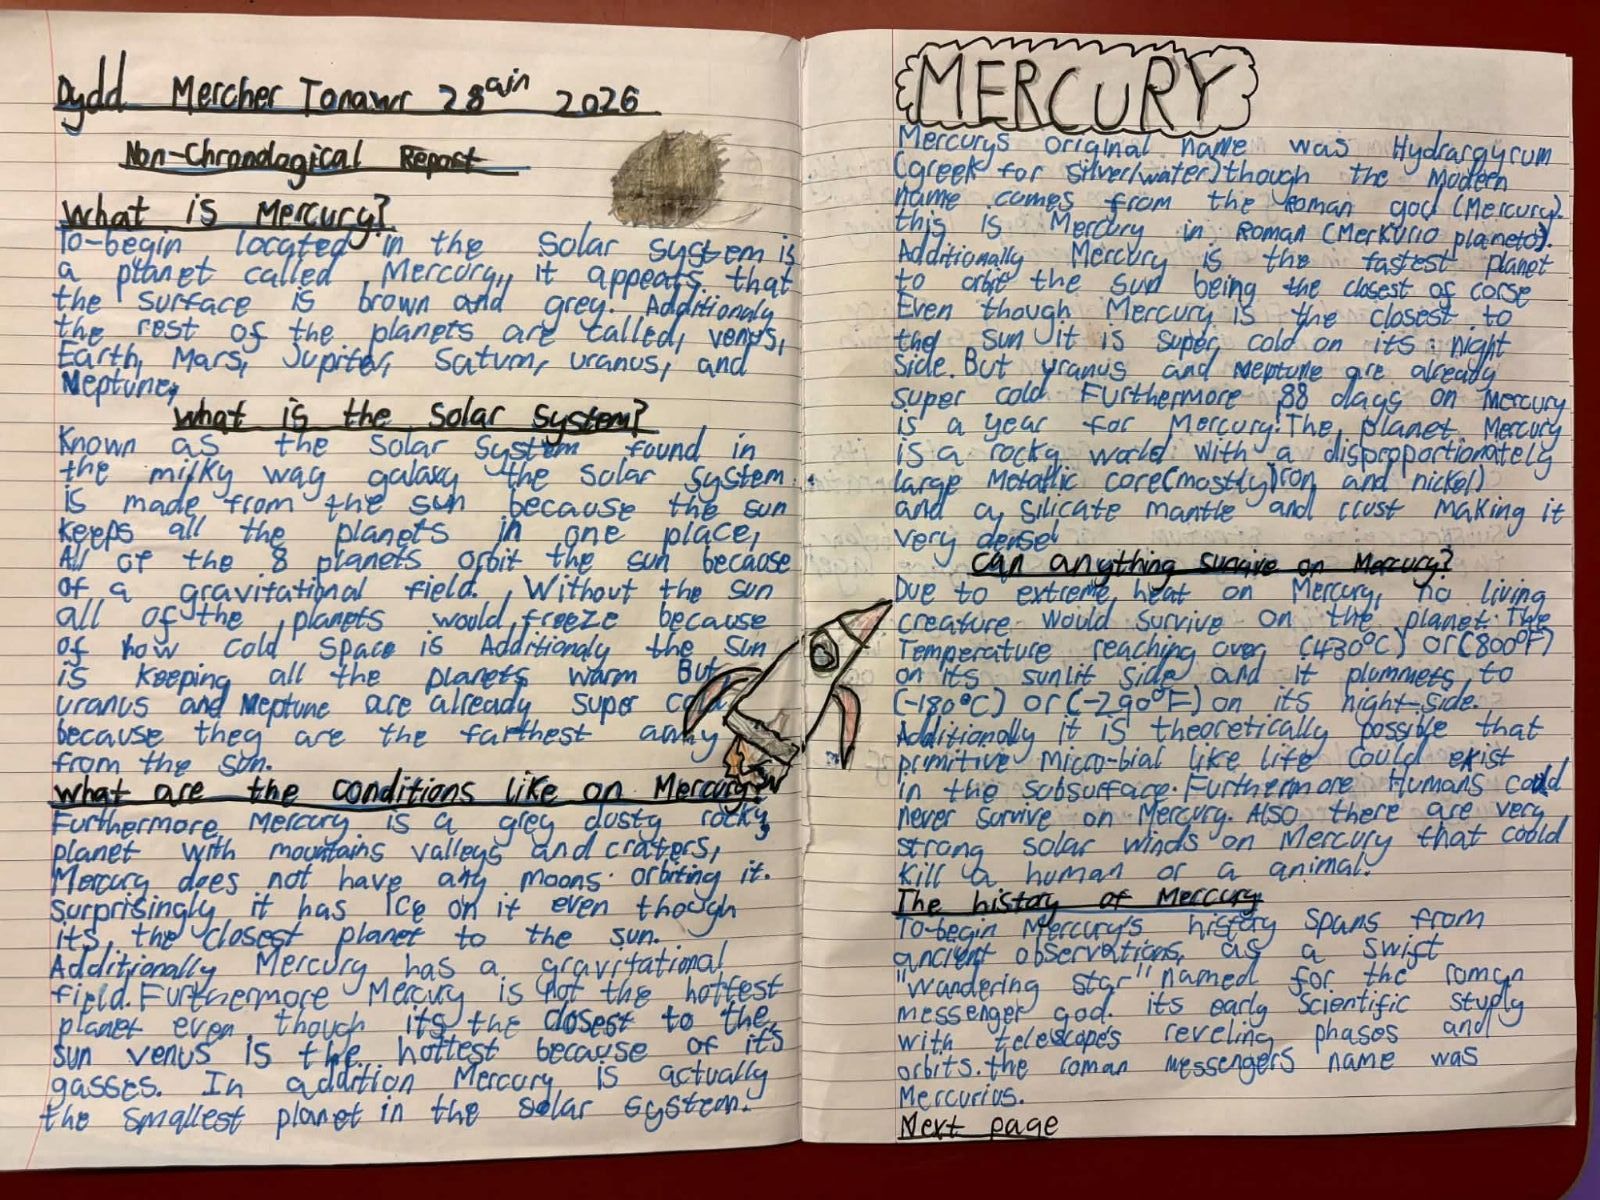 Dydd Mercher Ionawr 28ain 2026
Non-Chronological Report
What is Mercury?
To-begin located in the solar system is
a planet called Mercury, it appears that
the surface is brown and grey. Additionaly
the rest of the planets are called, venus,
Earth, Mars, Jupiter, Saturn, uranus, and
Neptune,
what is the solar system?
Known as the solar system found in
the milky way galaxy the solar system
is made from the sun because the sun
keeps all the planets in one place,
All of the 8 planets orbit the sun because
of a gravitational field. Without the sun
all of the planets would freeze because
of how cold space is Additionaly the sun
is keeping all the planets warm But
uranus and Neptune are already super cold
because they are the farthest away
from the sun.
what are the conditions like on Mercury?
Furthermore Mercury is a grey dusty rocky
planet with mountains valleys and craters,
Mercury does not have any moons orbiting it.
surprisingly it has Ice on it even though
its, the closest planet to the sun.
Additionally Mercury has a gravitational
field. Furthermore Mercury is not the hottest
planet even though its the closest to the
sun venus is the hottest because of it's
gasses. In addition Mercury is actually
the smallest planet in the solar system.
MERCURY
Mercurys original name was Hydrargyrum
(greek for silver/water) though the Modern
name comes from the roman god (Mercury).
this is Mercury in Roman (Merkurio planeto).
Additionally Mercury is the fastest planet
to orbit the sun being the closest of corse
Even though Mercury is the closest to
the sun it is super cold on its night
side. But uranus and Neptune are already
super cold Furthermore 88 days on Mercury
is a year for Mercury. The planet Mercury
is a rocky world with a disproportionately
large Metallic core (mostly iron and nickel)
and a silicate mantle and crust making it
very dense!
can anything survive on Mercury?
Due to extreme heat on Mercury, no living
creature would survive on the planet. The
Temperature reaching over (430°C) or (800°F)
on its sunlit side and it plummets to
(-180°C) or (-290°F) on its night-side.
Additionally it is theoretically possible that
primitive micro-bial like life could exist
in the subsurface. Furthermore Humans could
never survive on Mercury. Also there are very
strong solar winds on Mercury that could
kill a human or a animal.
The history of Mercury
To-begin Mercury's history spans from
ancient observations, as a swift
"wandering star" named for the roman
messenger god. its early scientific study
with telescopes reveling phases and
orbits. the roman messengers name was
Mercurius.
Next page